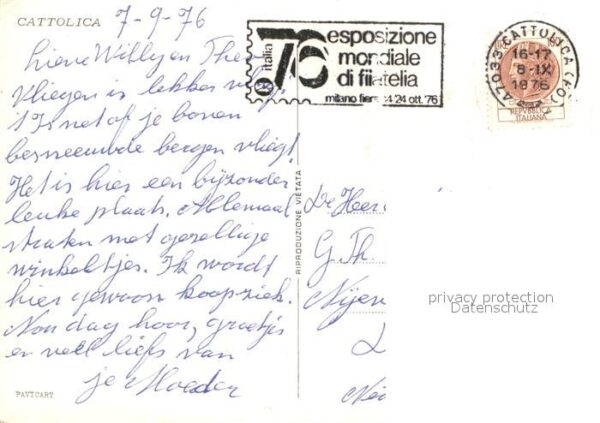 CATTOLICA
7-9-'76
Lieve Willy en Theo
Vliegen is lekker
't Is net of je boven
besneeuwde bergen vliegt!
Het is hier een bijzonder
leuke plaats. Allemaal
straten met gezellige
winkeltjes. Ik wordt
hier gewoon koopziek.
Nou dag hoor, groetjes
en veel liefs van
je Moeder
PAVICART
RIPRODUZIONE VIETATA
italia
76
esposizione
mondiale
di filatelia
milano 14 24 ott. '76
47033 CATTOLICA (FO)
16-17
8-IX
1976
REPVBBLICA
ITALIANA
De Heer
G. Th.
Nijen
privacy protection
Datenschutz